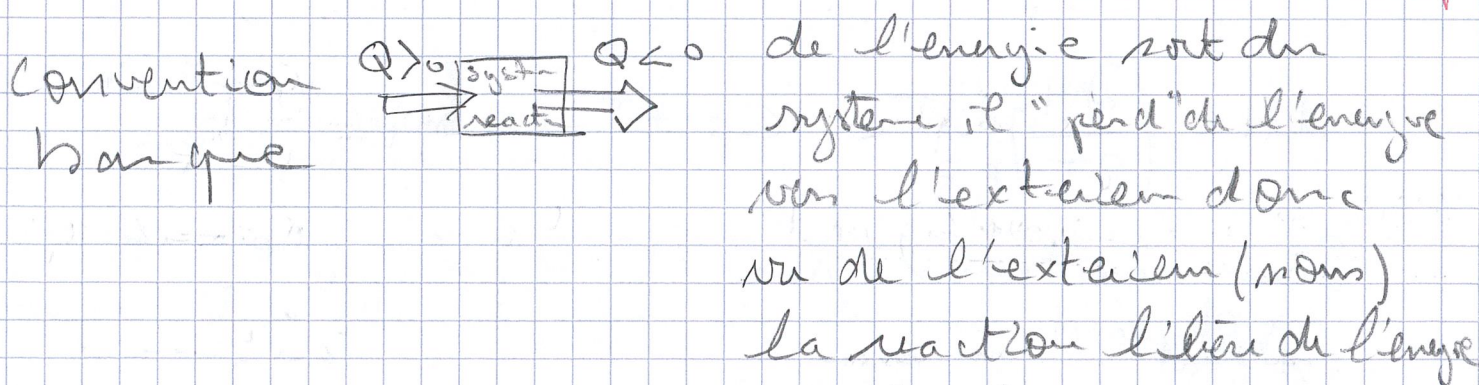 Convention
banque
Q>0
Q<0
syst
react
de l'energie sort du
système il "perd" de l'energie
vers l'exterieur donc
vu de l'exterieur (nous)
la reaction libère de l'energie